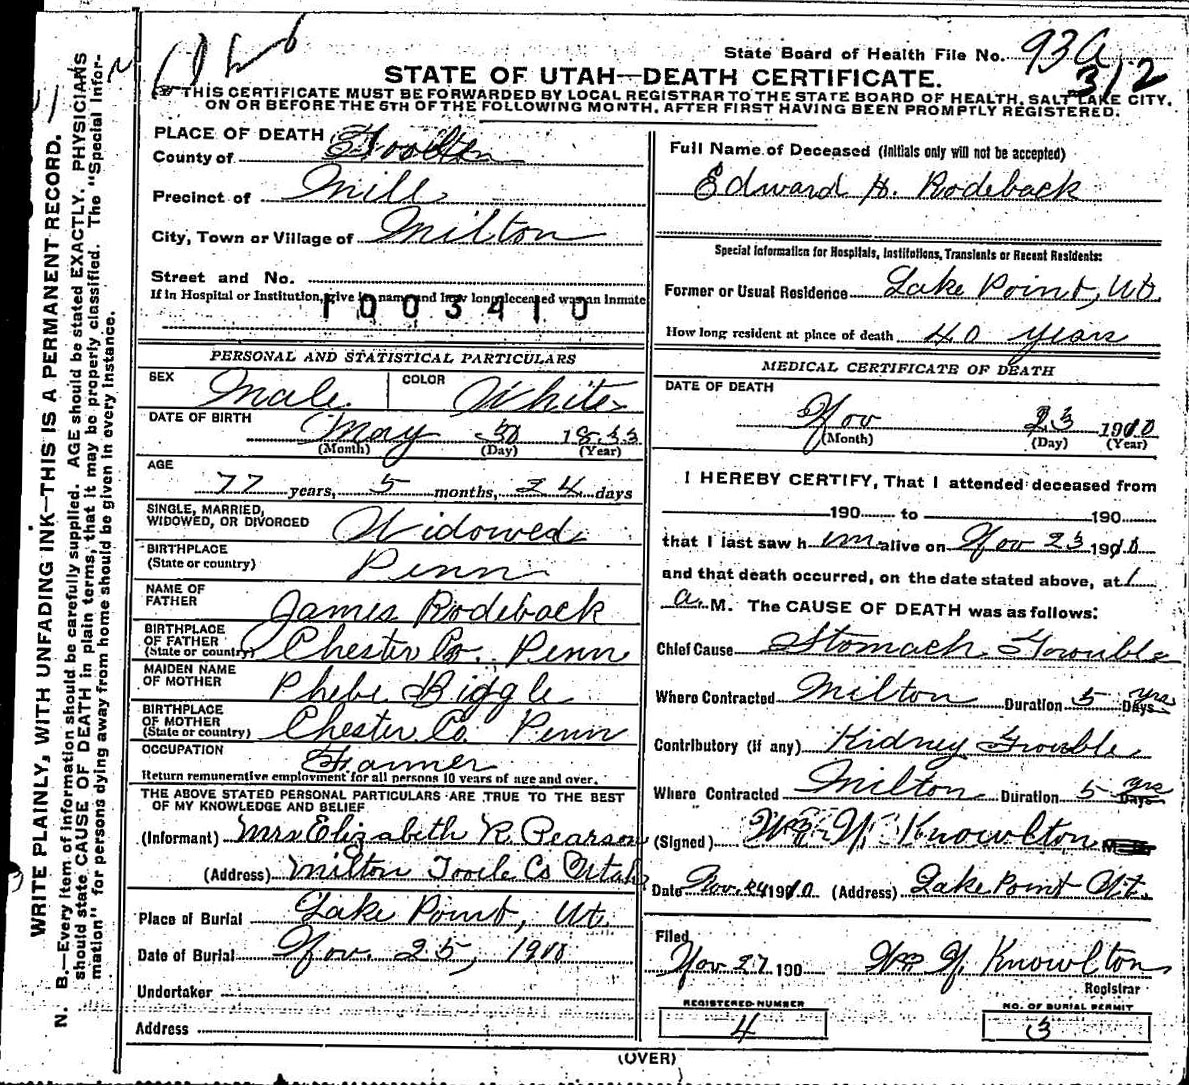 State Board of Health File No. 93a
312
STATE OF UTAH—DEATH CERTIFICATE.
THIS CERTIFICATE MUST BE FORWARDED BY LOCAL REGISTRAR TO THE STATE BOARD OF HEALTH, SALT LAKE CITY,
ON OR BEFORE THE 5TH OF THE FOLLOWING MONTH, AFTER FIRST HAVING BEEN PROMPTLY REGISTERED.
WRITE PLAINLY, WITH UNFADING INK—THIS IS A PERMANENT RECORD.
N. B.—Every item of information should be carefully supplied. AGE should be stated EXACTLY. PHYSICIANS
should state CAUSE OF DEATH in plain terms, that it may be properly classified. The "Special Infor-
mation" for persons dying away from home should be given in every instance.
PLACE OF DEATH
County of
Precinct of Mill
City, Town or Village of Milton
Street and No.
If in Hospital or Institution, give its name and how long deceased was an inmate
1003410
PERSONAL AND STATISTICAL PARTICULARS
SEX Male. COLOR White
DATE OF BIRTH May 30 1833
(Month) (Day) (Year)
AGE
77 years, 5 months, 24 days
SINGLE, MARRIED,
WIDOWED, OR DIVORCED Widowed
BIRTHPLACE
(State or country) Penn
NAME OF
FATHER James Rodeback
BIRTHPLACE
OF FATHER
(State or country) Chester Co. Penn
MAIDEN NAME
OF MOTHER Phebe Biggle
BIRTHPLACE
OF MOTHER
(State or country) Chester Co. Penn
OCCUPATION Farmer
Return remunerative employment for all persons 10 years of age and over.
THE ABOVE STATED PERSONAL PARTICULARS ARE TRUE TO THE BEST
OF MY KNOWLEDGE AND BELIEF
(Informant) Mrs Elizabeth R. Pearson
(Address) Milton Tooele Co Utah
Place of Burial Lake Point, Ut.
Date of Burial Nov. 25, 1910
Undertaker
Address
Full Name of Deceased (Initials only will not be accepted)
Edward H. Rodeback
Special Information for Hospitals, Institutions, Transients or Recent Residents:
Former or Usual Residence Lake Point, Ut.
How long resident at place of death 40 years
MEDICAL CERTIFICATE OF DEATH
DATE OF DEATH
Nov 23 1910
(Month) (Day) (Year)
I HEREBY CERTIFY, That I attended deceased from
190 to 190
that I last saw h im alive on Nov 23 1910
and that death occurred, on the date stated above, at 1
a. M. The CAUSE OF DEATH was as follows:
Chief Cause Stomach Trouble
Where Contracted Milton Duration 5 yrs Days
Contributory (if any) Kidney Trouble
Where Contracted Milton Duration 5 yrs Days
(Signed) Wm Y. Knowlton
Date Nov. 24 1910 (Address) Lake Point Ut.
Filed
Nov 27 190 Wm Y. Knowlton
Registrar
REGISTERED NUMBER
4
NO. OF BURIAL PERMIT
3
(OVER)